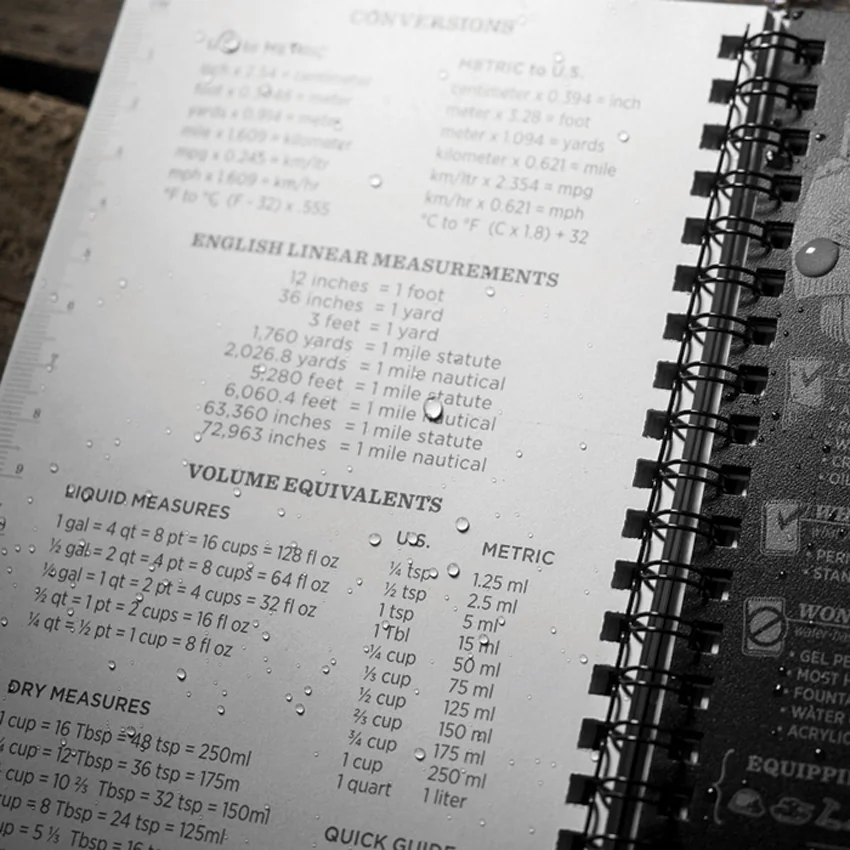 CONVERSIONS
U.S. to METRIC
inch x 2.54 = centimeter
foot x 0.3048 = meter
yards x 0.914 = meter
mile x 1.609 = kilometer
mpg x 0.245 = km/ltr
mph x 1.609 = km/hr
°F to °C (F - 32) x .555
METRIC to U.S.
centimeter x 0.394 = inch
meter x 3.28 = foot
meter x 1.094 = yards
kilometer x 0.621 = mile
km/ltr x 2.354 = mpg
km/hr x 0.621 = mph
°C to °F (C x 1.8) + 32
ENGLISH LINEAR MEASUREMENTS
12 inches = 1 foot
36 inches = 1 yard
3 feet = 1 yard
1,760 yards = 1 mile statute
2,026.8 yards = 1 mile nautical
5,280 feet = 1 mile statute
6,060.4 feet = 1 mile nautical
63,360 inches = 1 mile statute
72,963 inches = 1 mile nautical
VOLUME EQUIVALENTS
LIQUID MEASURES
1 gal = 4 qt = 8 pt = 16 cups = 128 fl oz
½ gal = 2 qt = 4 pt = 8 cups = 64 fl oz
gal = 1 qt = 2 pt = 4 cups = 32 fl oz
qt = 1 pt = 2 cups = 16 fl oz
¼ qt = ½ pt = 1 cup = 8 fl oz
U.S. METRIC
¼ tsp 1.25 ml
½ tsp 2.5 ml
1 tsp 5 ml
1 Tbl 15 ml
¼ cup 50 ml
⅓ cup 75 ml
½ cup 125 ml
⅔ cup 150 ml
¾ cup 175 ml
1 cup 250 ml
1 quart 1 liter
DRY MEASURES
1 cup = 16 Tbsp = 48 tsp = 250ml
cup = 12 Tbsp = 36 tsp = 175m
cup = 10 ⅔ Tbsp = 32 tsp = 150ml
cup = 8 Tbsp = 24 tsp = 125ml
= 5 ⅓ Tbsp = 16
QUICK GUIDE
4
6
7
8
9
• GEL
• MOST
•
• WATER
•